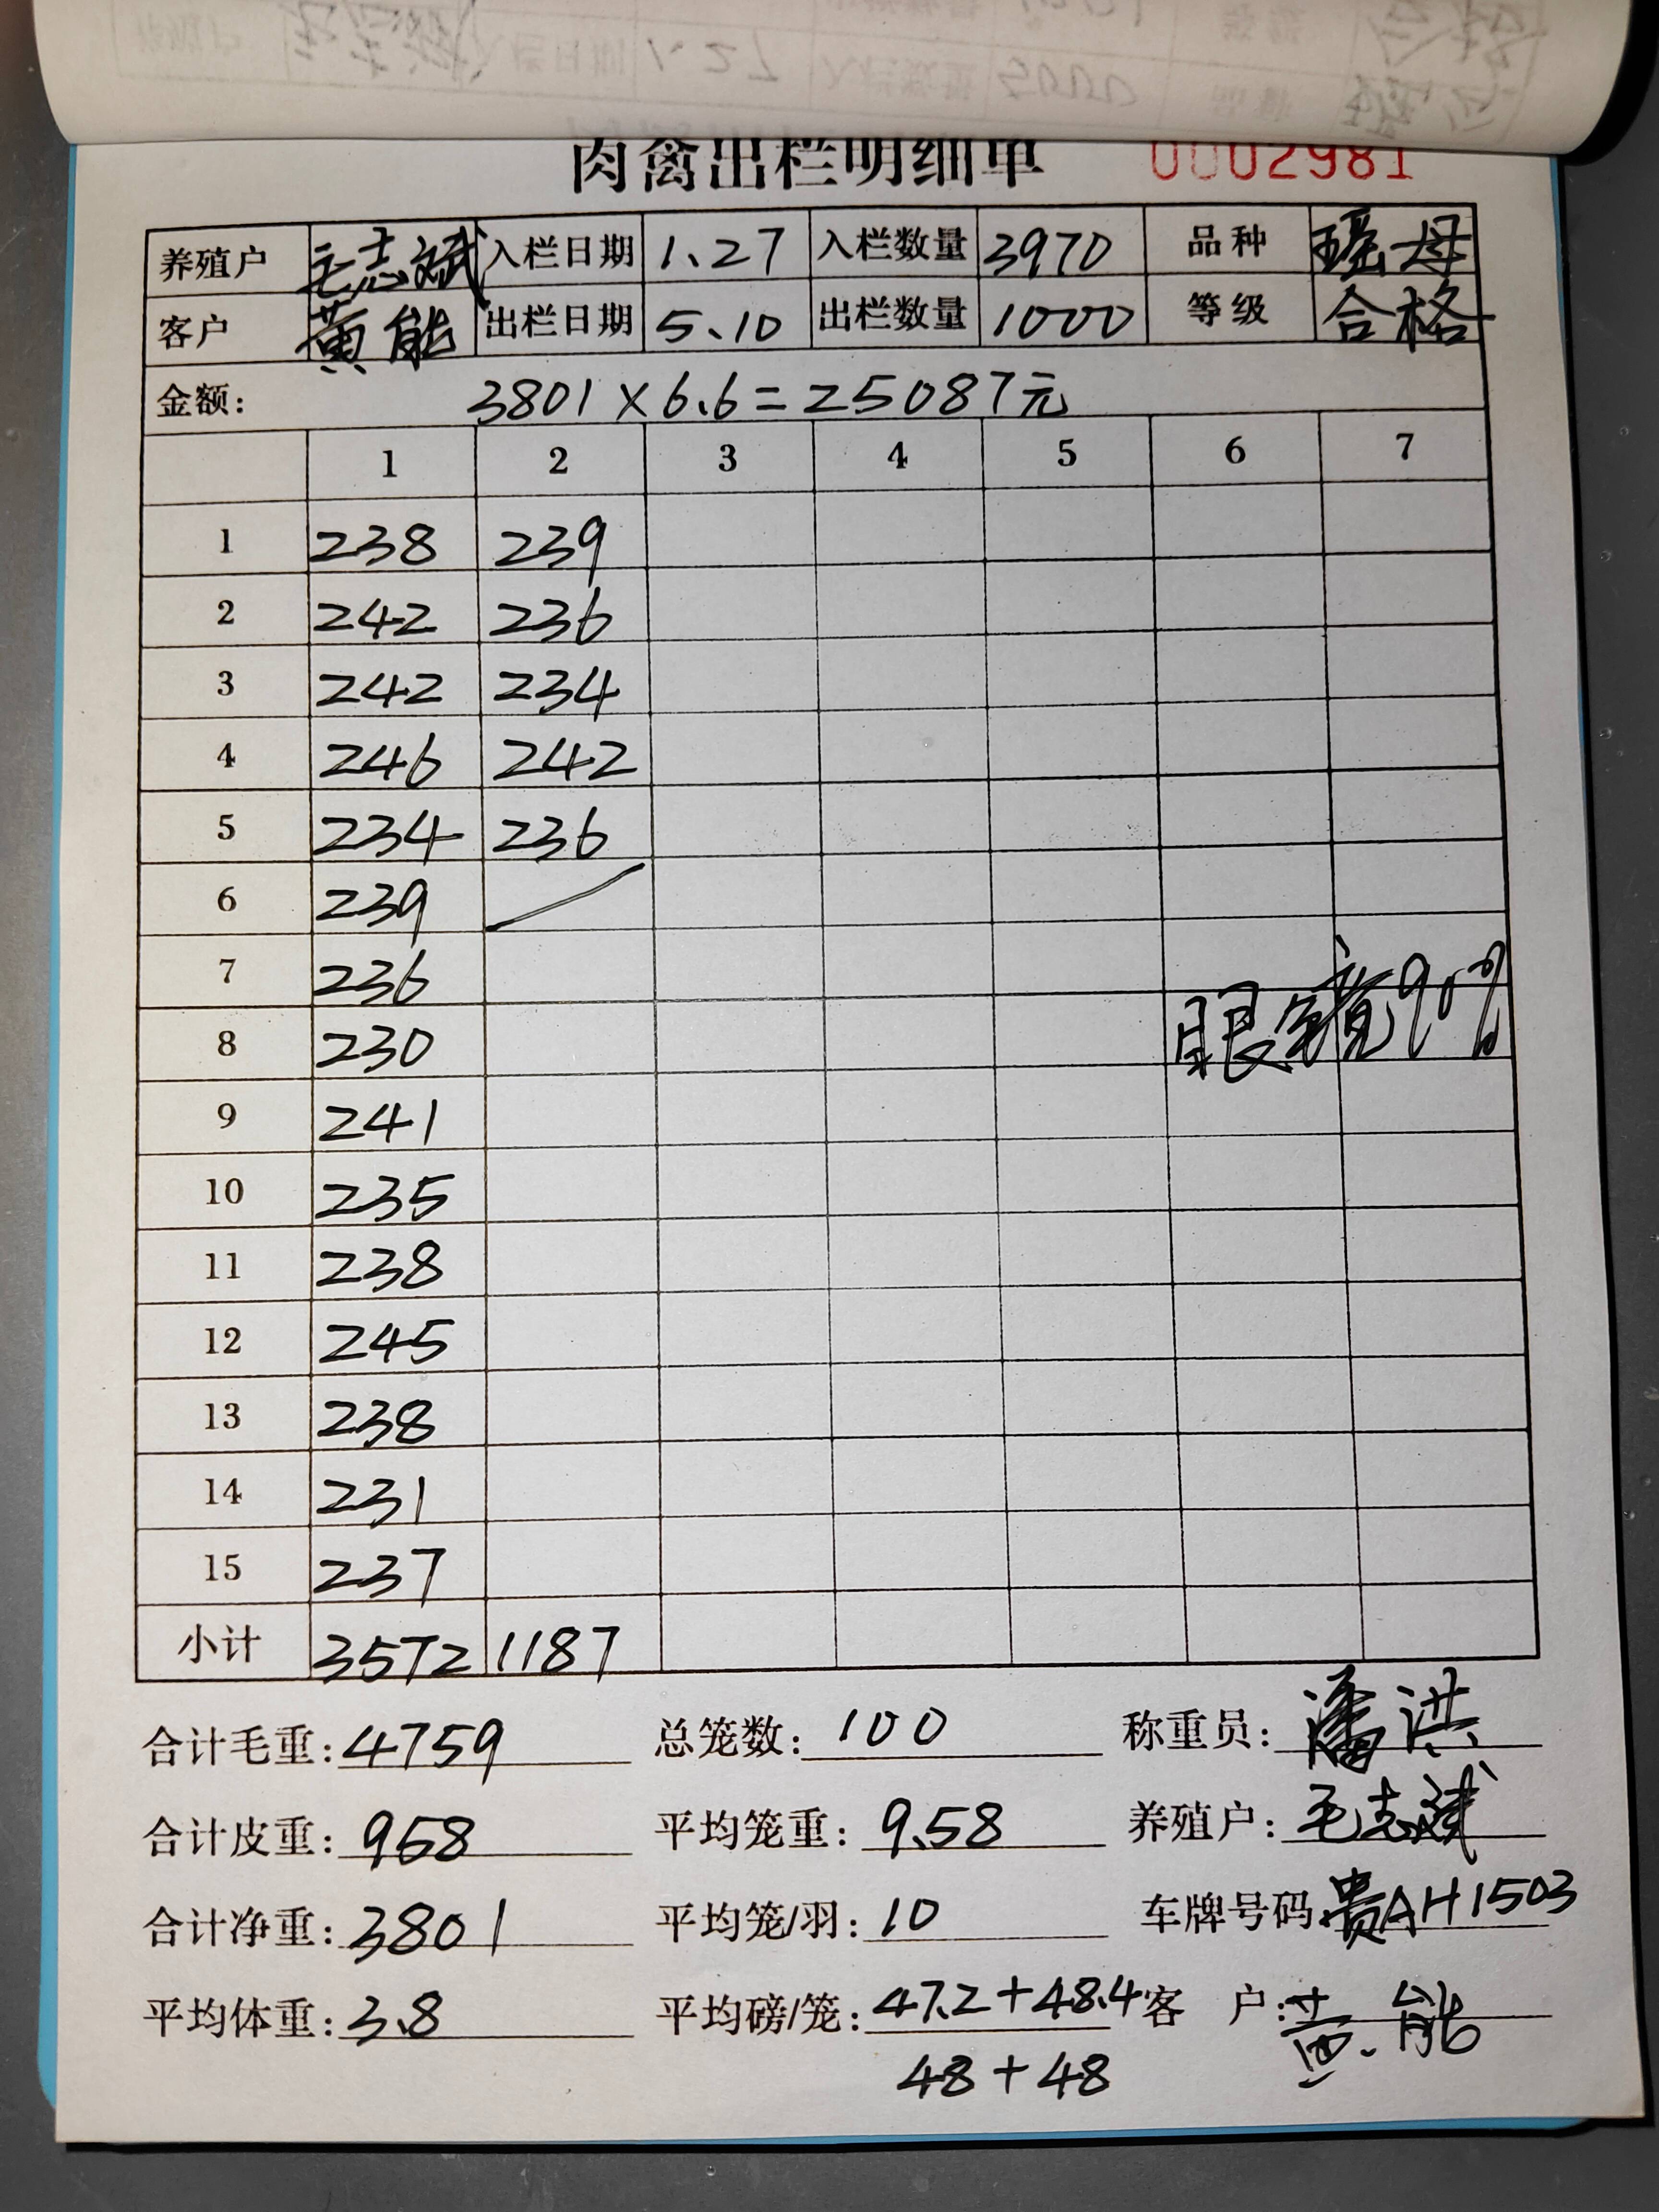 肉禽出栏明细单 0002981
养殖户 毛志斌 入栏日期 1.27 入栏数量 3970 品种 瑶母
客户 黄能 出栏日期 5.10 出栏数量 1000 等级 合格
金额: 3801×6.6=25087元
1 2 3 4 5 6 7
1 238 239
2 242 236
3 242 234
4 246 242
5 234 236
6 239
7 236
眼镜90%
8 230
9 241
10 235
11 238
12 245
13 238
14 231
15 237
小计 3572 1187
合计毛重: 4759 总笼数: 100 称重员: 潘洪
合计皮重: 958 平均笼重: 9.58 养殖户: 毛志斌
合计净重: 3801 平均笼/羽: 10 车牌号码 贵AH1503
平均体重: 3.8 平均磅/笼: 47.2+48.4 客 户: 黄能
48+48